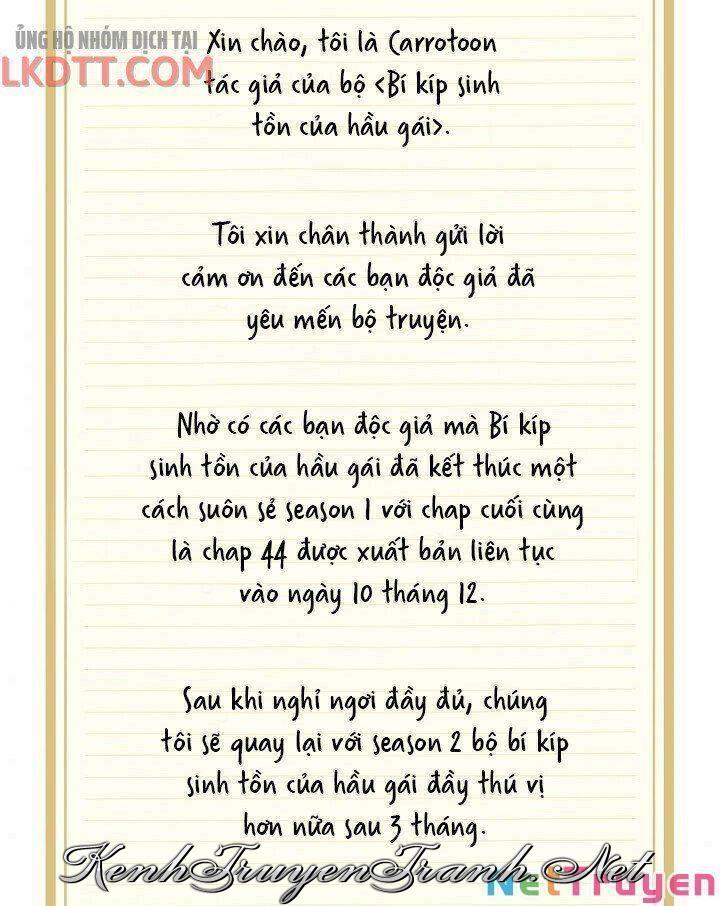 ỦNG HỘ NHÓM DỊCH TẠI
LKDTT.COM
Xin chào, tôi là Carrotoon
tác giả của bộ <Bí kíp sinh
tồn của hầu gái>.
Tôi xin chân thành gửi lời
cảm ơn đến các bạn độc giả đã
yêu mến bộ truyện.
Nhờ có các bạn độc giả mà Bí kíp
sinh tồn của hầu gái đã kết thúc một
cách suôn sẻ season 1 với chap cuối cùng
là chap 44 được xuất bản liên tục
vào ngày 10 tháng 12.
Sau khi nghỉ ngơi đầy đủ, chúng
tôi sẽ quay lại với season 2 bộ bí kíp
sinh tồn của hầu gái đầy thú vị
hơn nữa sau 3 tháng.
KenhTruyenTranh.Net
NetTruyen